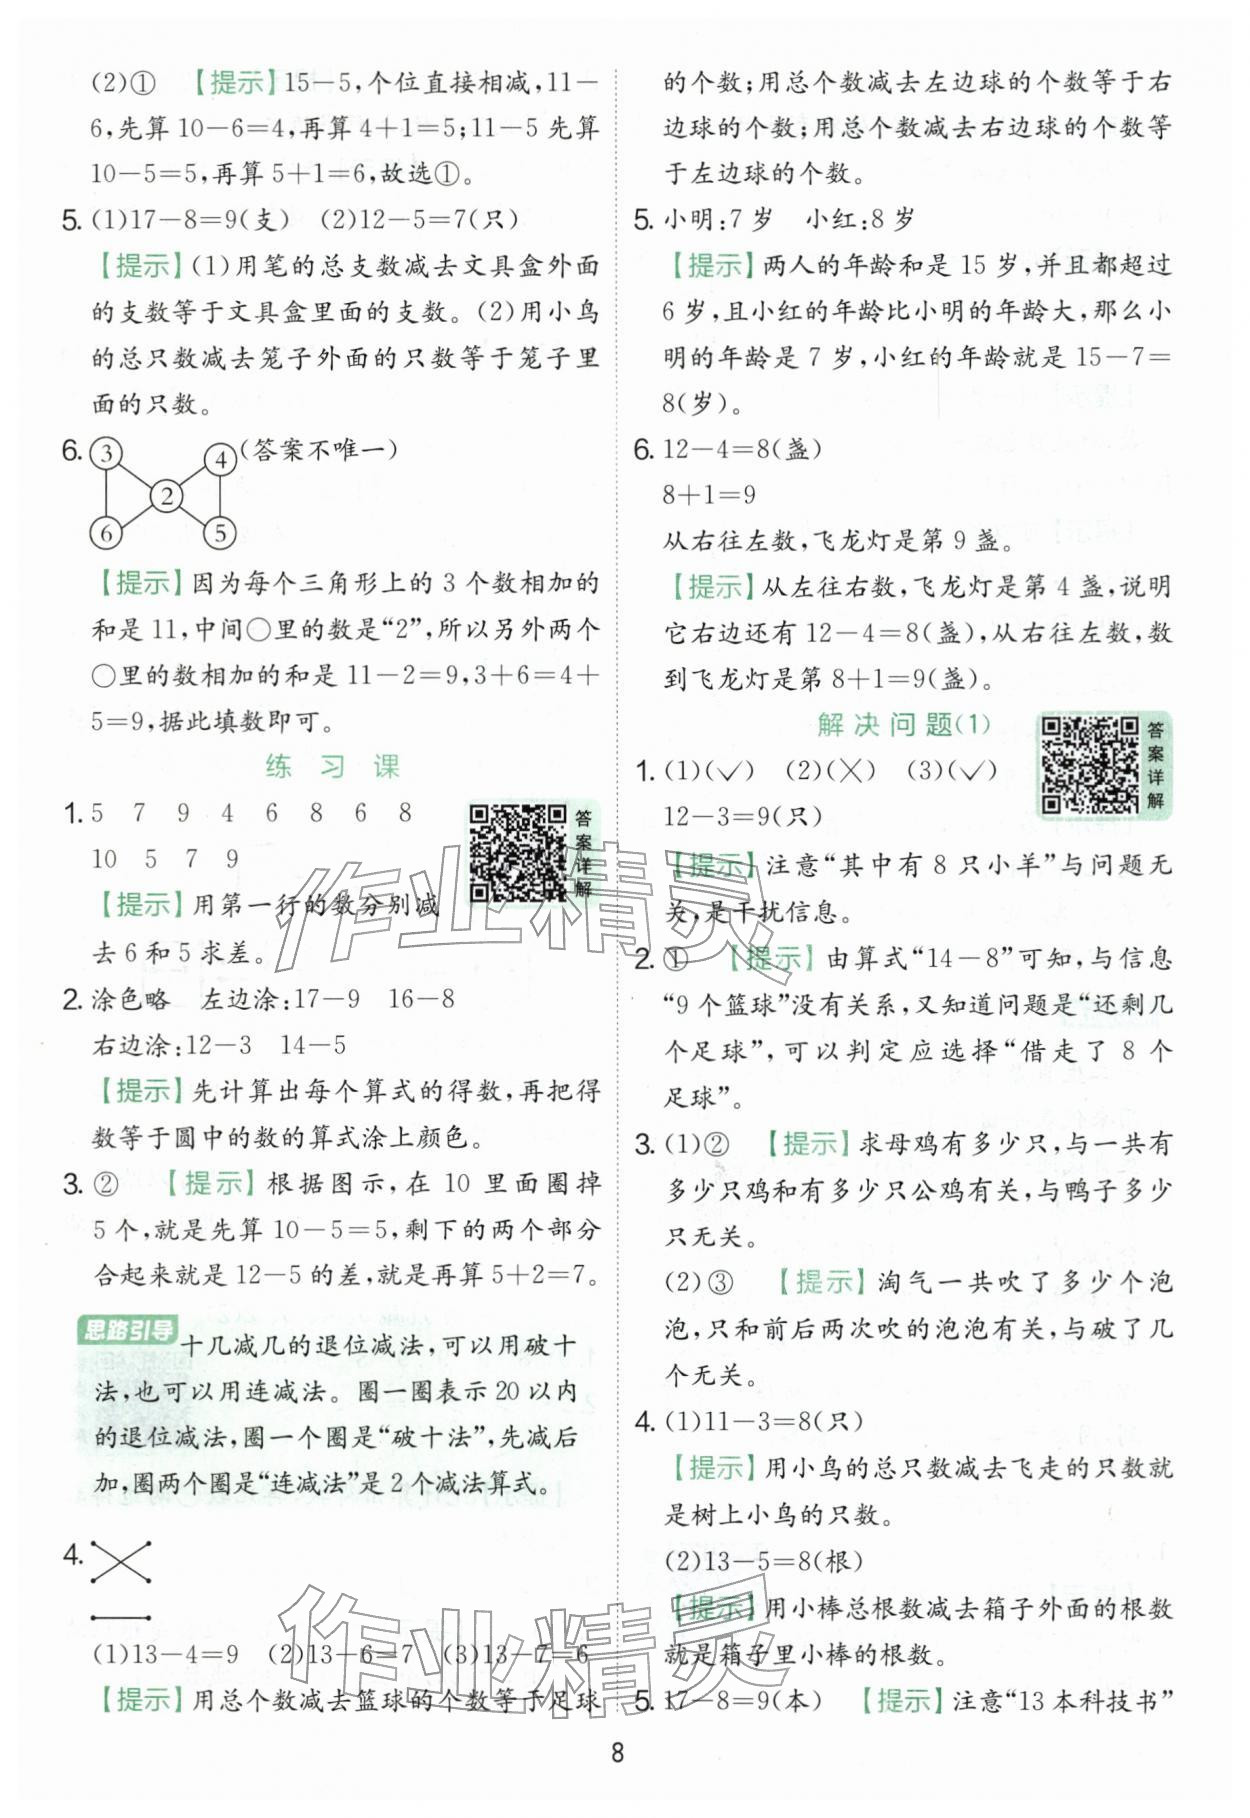 (2)① 【提示】15－5,个位直接相减,11－
6,先算 10－6＝4,再算 4＋1＝5;11－5 先算
10－5＝5,再算 5＋1＝6,故选①。
5. (1)17－8＝9(支) (2)12－5＝7(只)
【提示】(1)用笔的总支数减去文具盒外面
的支数等于文具盒里面的支数。(2)用小鸟
的总只数减去笼子外面的只数等于笼子里
面的只数。
6. ③ ④ (答案不唯一)
②
⑥ ⑤
【提示】因为每个三角形上的 3 个数相加的
和是 11,中间○里的数是“2”,所以另外两个
○里的数相加的和是 11－2＝9,3＋6＝4＋
5＝9,据此填数即可。
练 习 课
1. 5 7 9 4 6 8 6 8
10 5 7 9
答案详解
【提示】用第一行的数分别减
去 6 和 5 求差。
2. 涂色略 左边涂:17－9 16－8
右边涂:12－3 14－5
【提示】先计算出每个算式的得数,再把得
数等于圆中的数的算式涂上颜色。
3. ② 【提示】根据图示,在 10 里面圈掉
5 个,就是先算 10－5＝5,剩下的两个部分
合起来就是 12－5 的差,就是再算 5＋2＝7。
思路引导 十几减几的退位减法,可以用破十
法,也可以用连减法。圈一圈表示 20 以内
的退位减法,圈一个圈是“破十法”,先减后
加,圈两个圈是“连减法”是 2 个减法算式。
4.
(1)13－4＝9 (2)13－6＝7 (3)13－7＝6
【提示】用总个数减去篮球的个数等于足球
的个数;用总个数减去左边球的个数等于右
边球的个数;用总个数减去右边球的个数等
于左边球的个数。
5. 小明:7 岁 小红:8 岁
【提示】两人的年龄和是 15 岁,并且都超过
6 岁,且小红的年龄比小明的年龄大,那么小
明的年龄是 7 岁,小红的年龄就是 15－7＝
8(岁)。
6. 12－4＝8(盏)
8＋1＝9
从右往左数,飞龙灯是第 9 盏。
【提示】从左往右数,飞龙灯是第 4 盏,说明
它右边还有 12－4＝8(盏),从右往左数,数
到飞龙灯是第 8＋1＝9(盏)。
解 决 问 题(1)
答案详解
1. (1)(✓) (2)(╳) (3)(✓)
12－3＝9(只)
【提示】注意“其中有 8 只小羊”与问题无
关,是干扰信息。
2. ① 【提示】由算式“14－8”可知,与信息
“9 个篮球”没有关系,又知道问题是“还剩几
个足球”,可以判定应选择“借走了 8 个
足球”。
3. (1)② 【提示】求母鸡有多少只,与一共有
多少只鸡和有多少只公鸡有关,与鸭子多少
只无关。
(2)③ 【提示】淘气一共吹了多少个泡
泡,只和前后两次吹的泡泡有关,与破了几
个无关。
4. (1)11－3＝8(只)
【提示】用小鸟的总只数减去飞走的只数就
是树上小鸟的只数。
(2)13－5＝8(根)
【提示】用小棒总根数减去箱子外面的根数
就是箱子里小棒的根数。
5. 17－8＝9(本) 【提示】注意“13 本科技书”
8
作业精灵
作业精灵